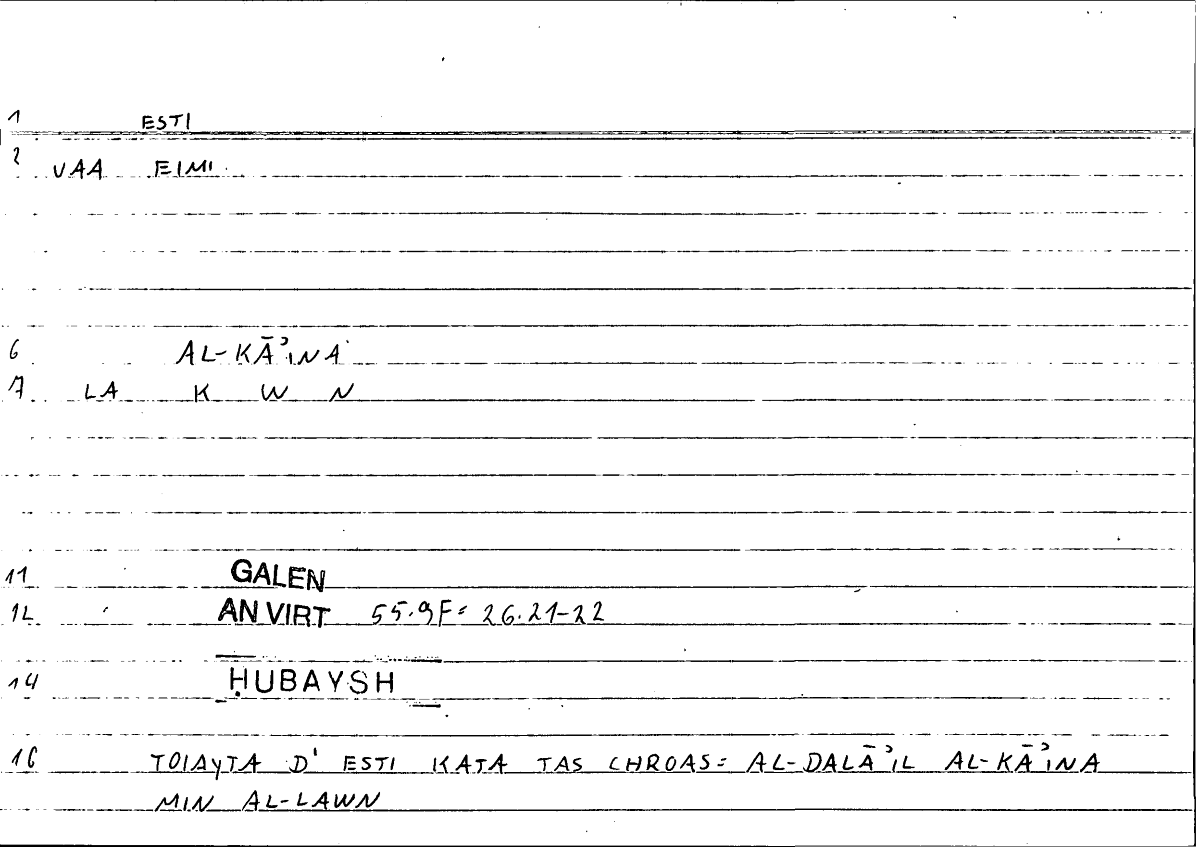 1 ESTI
2 VAA EIMI
6 AL-KĀʾINA
7 LA K W N
11 GALEN
12 AN VIRT 55.9F= 26.21-22
14 ḤUBAYSH
16 TOIAYTA D' ESTI KATA TAS CHROAS= AL-DALĀʾIL AL-KĀʾINA
MIN AL-LAWN